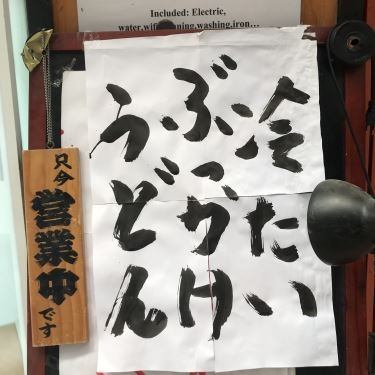 Included: Electric,
washing,iron…
冷たい
ぶっかけ
うどん
只今
営業中
です